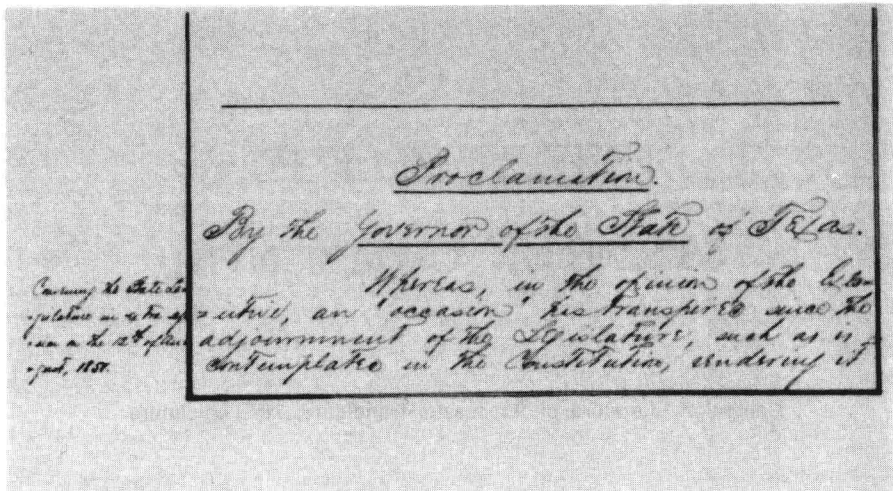 Proclamation.
By the Governor of the State of Texas.
Whereas, in the opinion of the Exec
utive, an "occasion" has transpired since the
adjournment of the Legislature, such as is
contemplated in the Constitution, rendering it
Convening the State Le
gislature in extra ses
sion on the 12th of Au
gust, 1850.